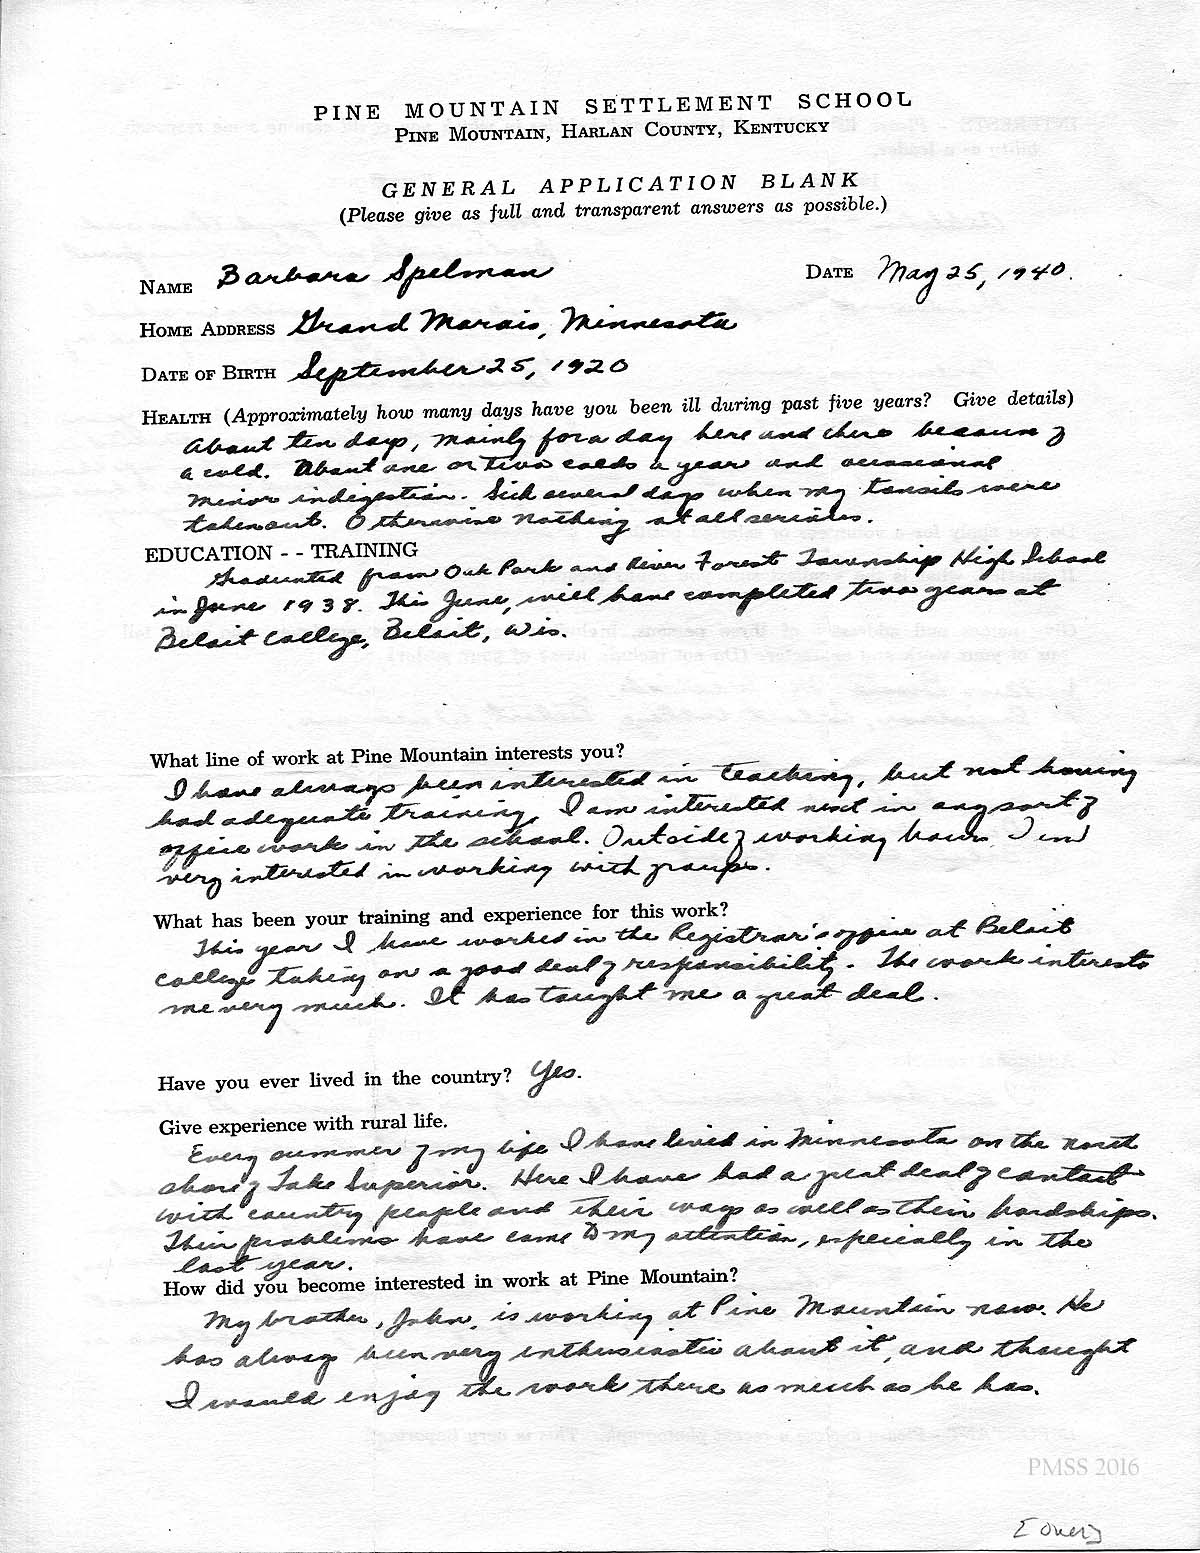 PINE MOUNTAIN SETTLEMENT SCHOOL
PINE MOUNTAIN, HARLAN COUNTY, KENTUCKY
GENERAL APPLICATION BLANK
(Please give as full and transparent answers as possible.)
NAME Barbara Spelman DATE May 25, 1940.
HOME ADDRESS Grand Marais, Minnesota
DATE OF BIRTH September 25, 1920
HEALTH (Approximately how many days have you been ill during past five years? Give details)
About ten days, mainly for a day here and there because of
a cold. About one or two colds a year and occasional
minor indigestion. Sick several days when my tonsils were
taken out. Otherwise nothing at all serious.
EDUCATION - - TRAINING
Graduated from Oak Park and River Forest Township High School
in June 1938. This June, will have completed two years at
Beloit College, Beloit, Wis.
What line of work at Pine Mountain interests you?
I have always been interested in teaching, but not having
had adequate training, I am interested next in any sort of
office work in the school. Outside of working hours I am
very interested in working with groups.
What has been your training and experience for this work?
This year I have worked in the Registrar's office at Beloit
College taking on a good deal of responsibility. The work interests
me very much. It has taught me a great deal.
Have you ever lived in the country? Yes.
Give experience with rural life.
Every summer of my life I have lived in Minnesota on the north
shore of Lake Superior. Here I have had a great deal of contact
with country people and their ways as well as their hardships.
Their problems have come to my attention, especially in the
last year.
How did you become interested in work at Pine Mountain?
My brother, John, is working at Pine Mountain now. He
has always been very enthusiastic about it, and thought
I would enjoy the work there as much as he has.
PMSS 2016
[Over]